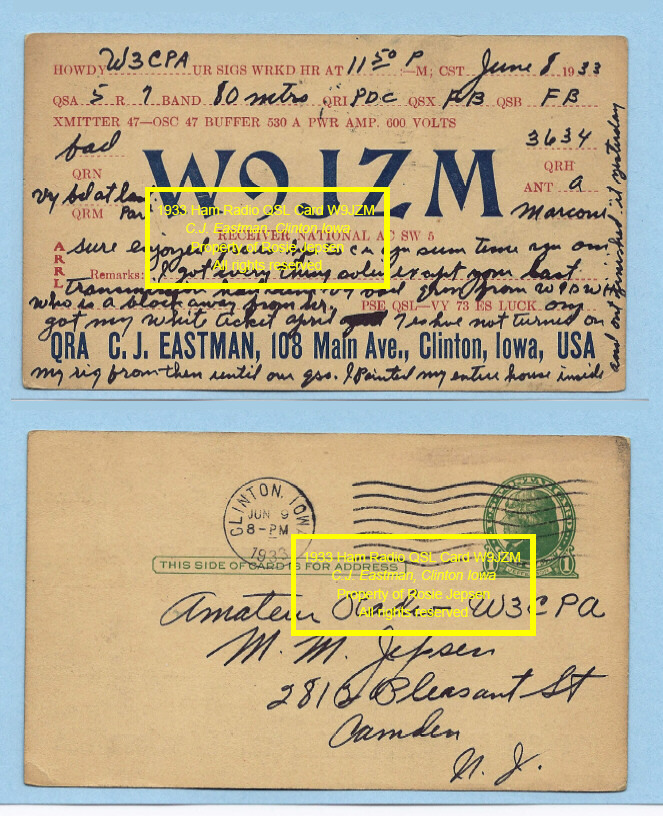 HOWDY W3CPA UR SIGS WRKD HR AT 11 50 P —M; CST June 8 1933
QSA 5 R 7 BAND 80 mtrs QRI PDC QSX FB QSB FB
XMITTER 47—OSC 47 BUFFER 530 A PWR AMP. 600 VOLTS 3634
bad QRH
QRN ANT a
QRM Marconi
W9JZM
RECEIVER NATIONAL AC SW 5
1933 Ham Radio QSL Card W9JZM
C.J. Eastman, Clinton Iowa
Property of Rosie Jepsen
All rights reserved
ARRL
sure
Remarks: I got every thing except your last
from W9DW
who is a block away from her. PSE QSL—VY 73 ES LUCK
got my white ticket April 7 es hve not turned on
QRA C. J. EASTMAN, 108 Main Ave., Clinton, Iowa, USA
my rig from then until our qso. I Painted my entire house inside
and out finished it yesterday
CLINTON, IOWA
JUN 9
8-PM
1933
THIS SIDE OF CARD IS FOR ADDRESS
1 1
1933 Ham Radio QSL Card W9JZM
C.J. Eastman, Clinton Iowa
Property of Rosie Jepsen
All rights reserved
Amateur W3CPA
M. M. Jepsen
Pleasant St
Camden
N. J.